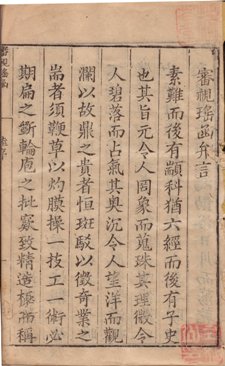 審視瑤函弁言
素難而後有顓科猶六經而後有子史
也其旨元令人罔象而蒐珠其理微令
人碧落而占氣其奧沉令人望洋而觀
瀾以故鼎之貴者恒斑駁以徵奇業之
耑者須鞭草以灼膜操一技工一術必
期扁之斲輪庖之批窾致精造極而稱
審視瑤函